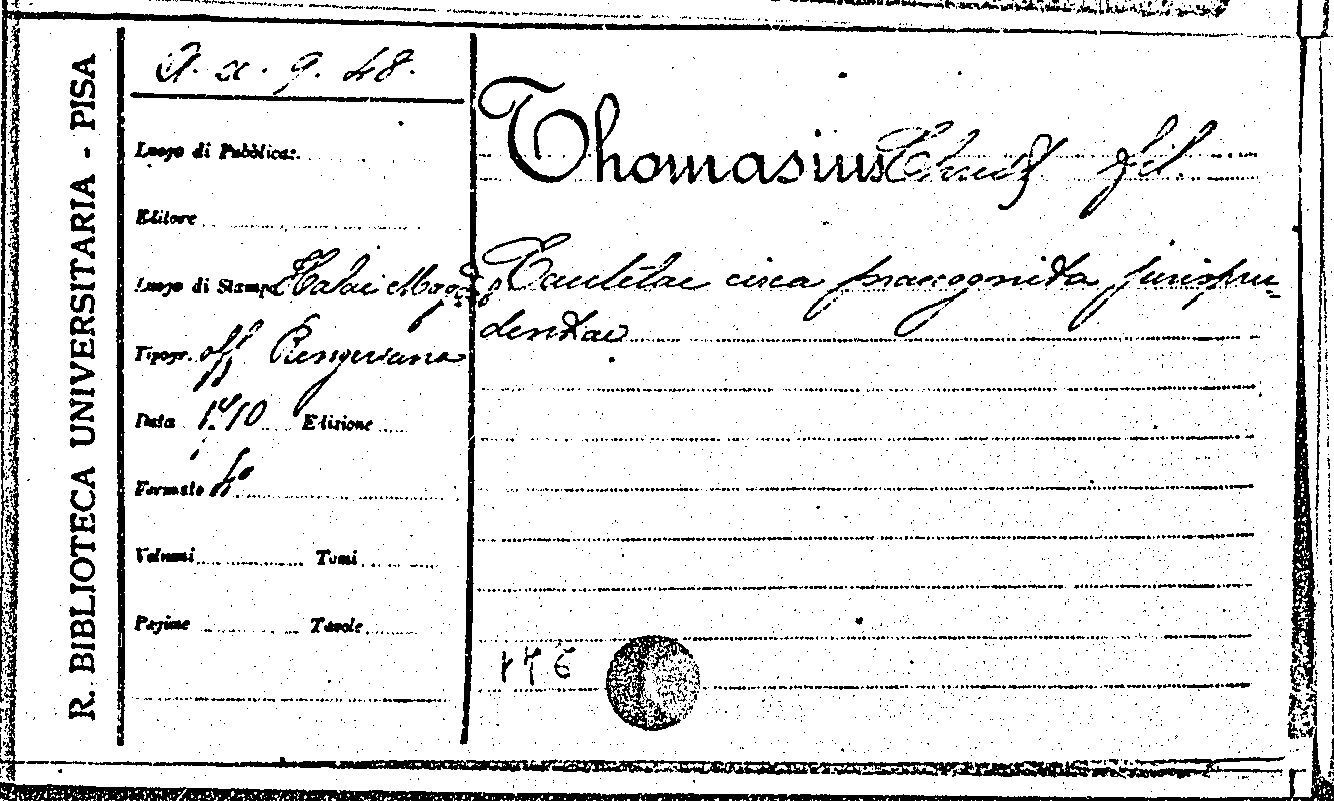 R. BIBLIOTECA UNIVERSITARIA - PISA
A. a. 9. 48.
Luogo di Pubblicaz.
Editore
Luogo di Stampa Halae Magd
Tipogr. off Rengeriana
Data 1710 Edizione
Formato 4°
Volumi Tomi
Pagine Tavole
Thomasius Christ fil.
Cautelae circa praecognita jurispru-
dentiae
176